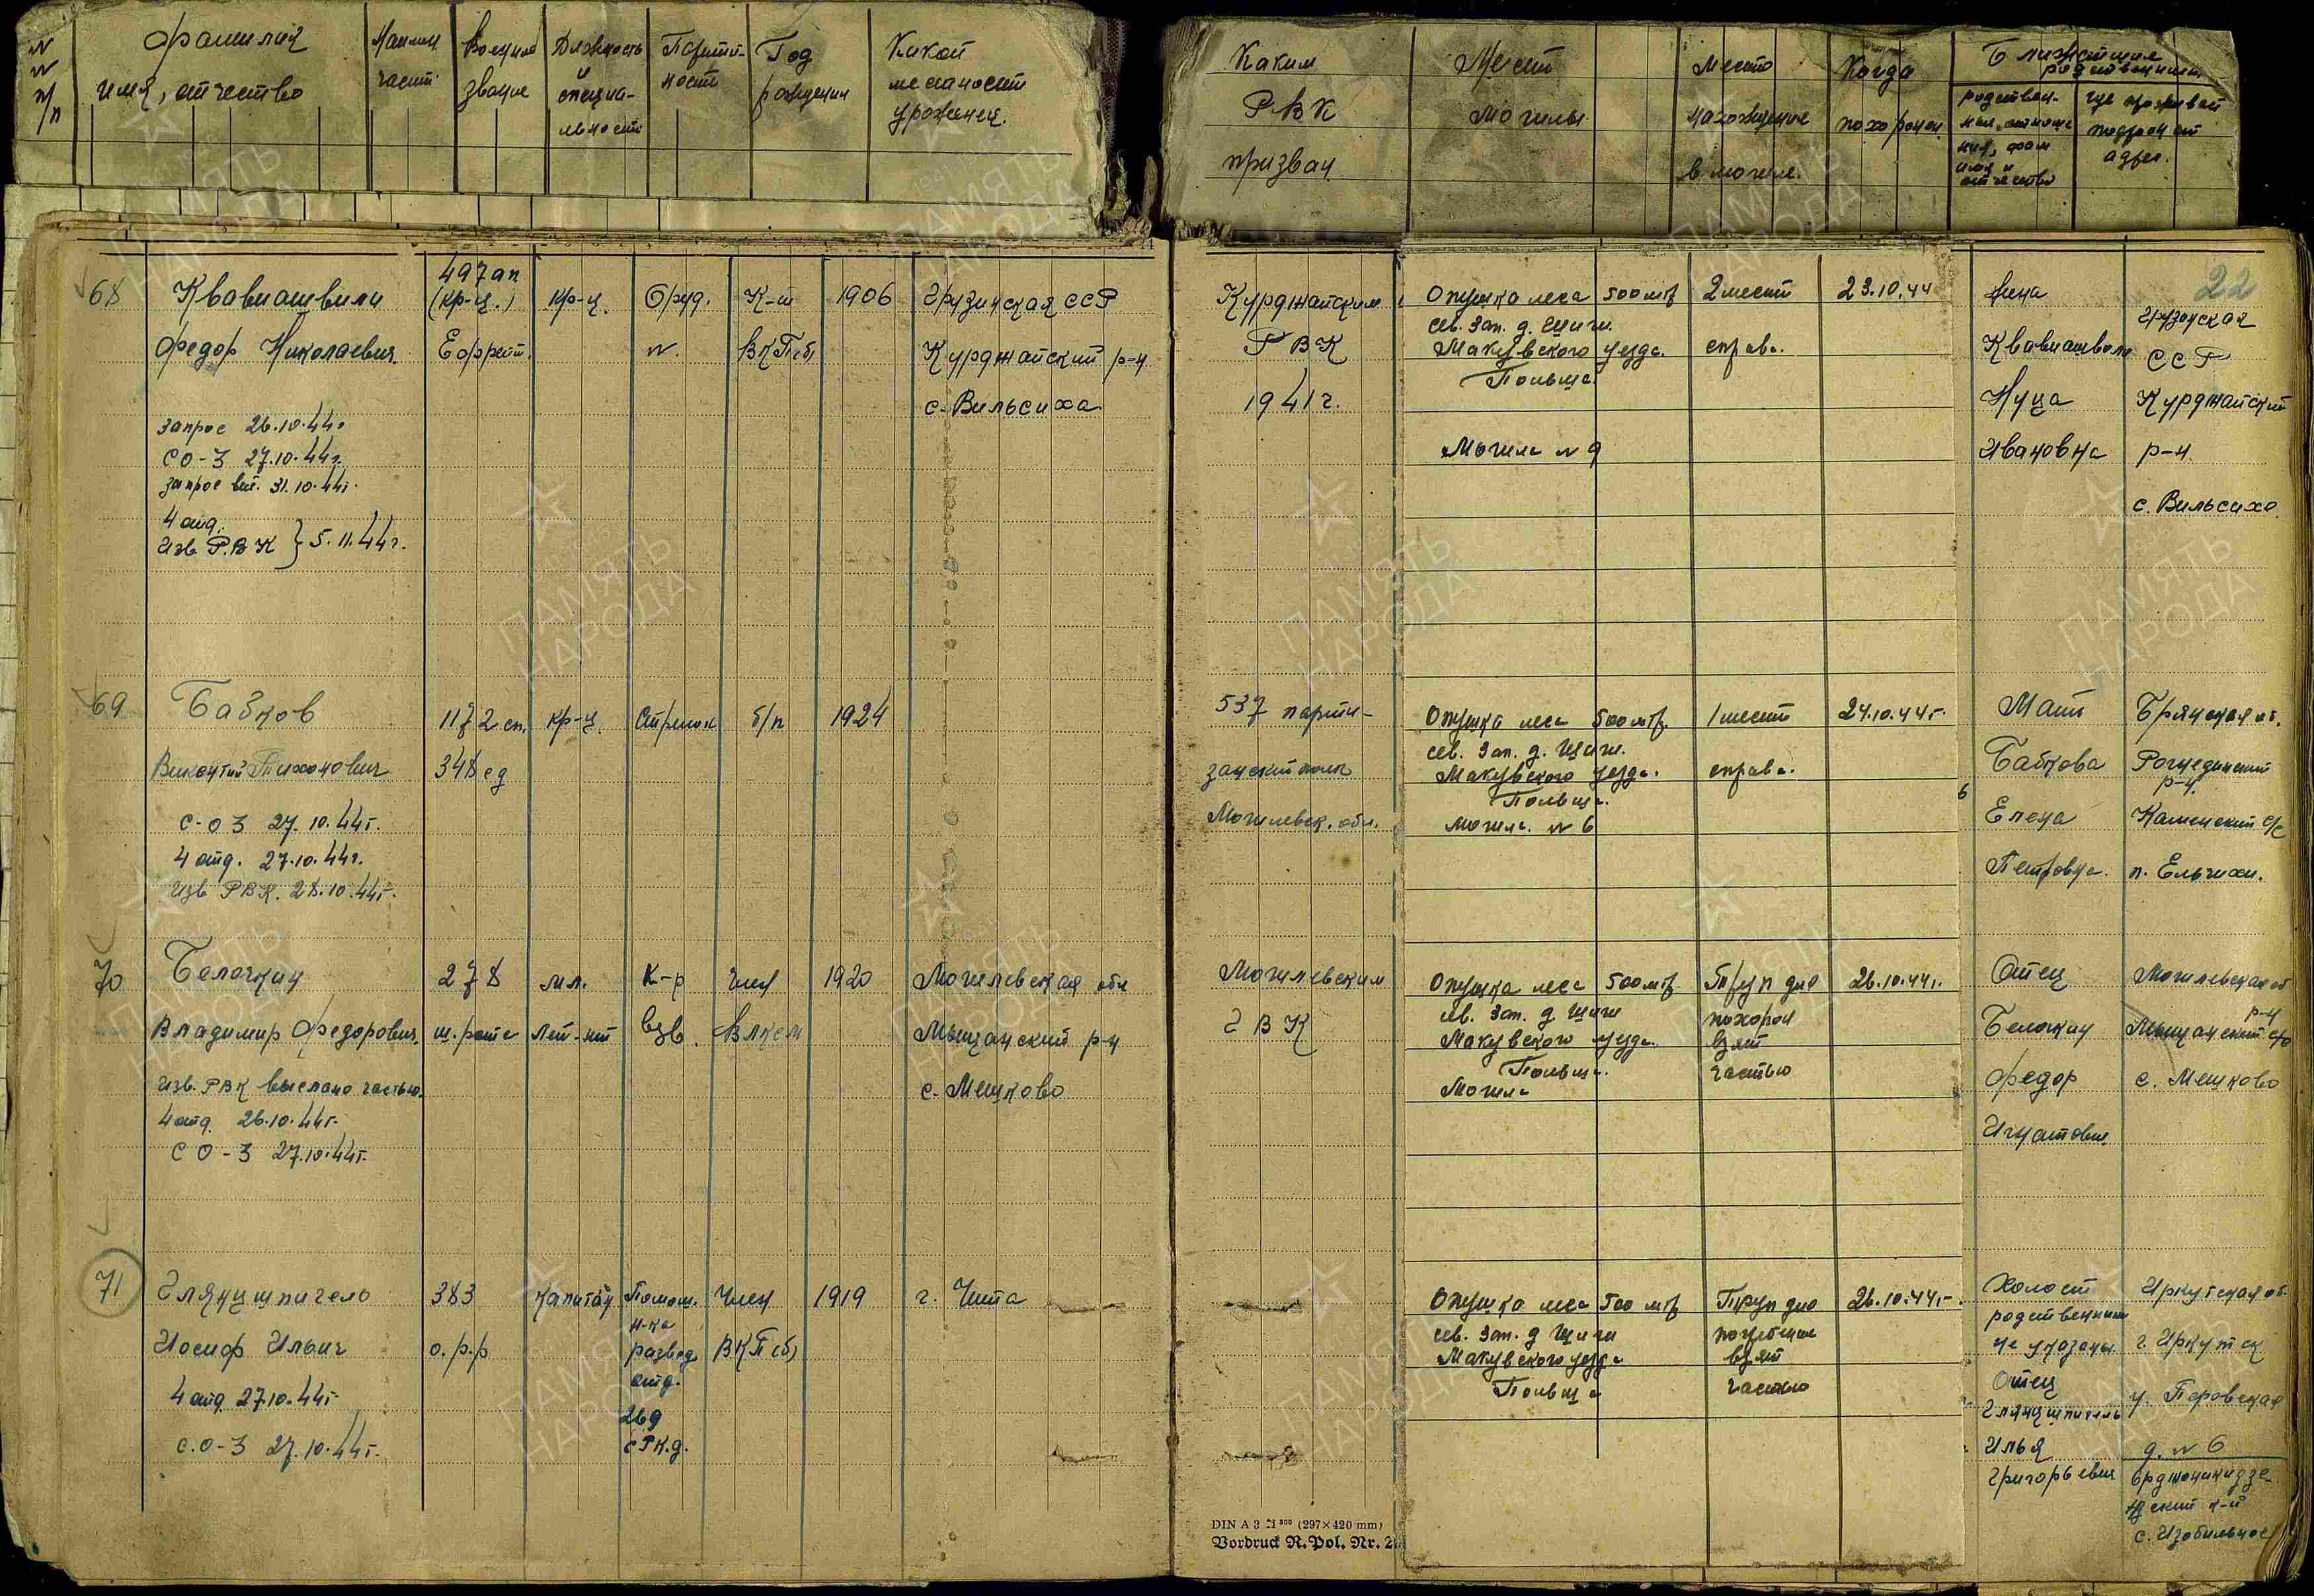 № № п/п
Фамилия имя, отчество
Наимен. части
Военное звание
Должность и специальность
Партийность
Год рождения
Какой местности уроженец.
Каким РВК призван
Место могилы
Место нахождение в могиле.
Когда похоронен
Ближайшие родственники
где проживает подробный адрес.
22
68 Квавиашвили 497 ап кр-ц. Оруд. К-т 1906 Грузинская ССР Курджайским Опушка леса 500 мтр 2 место 23.10.44 Жена
(кр-ц.)
Федор Николаевич Ефрейт. № ВКП(б) Курджайский р-н РВК сев. зап. д. Щиги. справа. Квавиашвили Грузинская ССР
Макувского уезда.
Польша.
с. Вильсиха 1941 г. Нуца Курджайский
запрос 26.10.44г
СО-3 27.10.44г. Могила № 9 Ивановна р-н.
запрос вт. 31.10.44г.
с. Вильсиха.
4 отд.
Изв. Р.В.К } 5.11.44г.
69 Бабков 1172 сп. кр-ц. Стрелок б/п 1924 537 парти- Опушка леса 500 мтр. 1 место 24.10.44г. Мать Брянская об.
сев. зап. д. Щиги.
Викентий Тихонович 348 сд занский полк Макувского уезда. справа. Бабкова Рогнединский р-н.
Польша.
С-О 3 27.10.44г. Могилевск. обл. Могила № 6 Елена Каменский с/с
4 отд. 27.10.44г. Петровна. п. Ельчихи.
Изв РВК. 28.10.44г.
70 Белочкин 278 мл. К-р Член 1920 Могилевская обл Могилевским Опушка леса 500 мтр. Труп для 26.10.44г. Отец Могилевская об
Владимир Федорович. ш. роте Лей-нт взв. ВЛКСМ Мышанский р-н ГВК сев. зап. д Щиги похорон Белочкин р-н Мышанский с/с
Макувского уезда. взят
Польша. частью
Изв. РВК выслано частью. с. Мешково Могила Федор с. Мешково
4 отд. 26.10.44г.
Игнатович.
СО-3 27.10.44г.
71 Глянцшпигель 383 Капитан Помощ. Член 1919 г. Чита Опушка леса 500 мтр Труп для 26.10.44г. Холост Иркутская об.
н-ка родственники
Иосиф Ильич о.р.р развед. ВКП(б) сев. зап. д Щиги погребения не указаны. г. Иркутск
отд. Макувского уезда взят Отец
4 отд 27.10.44г 269 Польша частью Глянцшпигель у. Перовская
С.О-3 27.10.44г. с Р К.д. Илья д. № 6
Григорьевич Орджоникидзе
ский к-й
с. Изобильное
DIN A 3 (297×420 mm)
Vordruck R. Pol. Nr. 2
ПАМЯТЬ НАРОДА